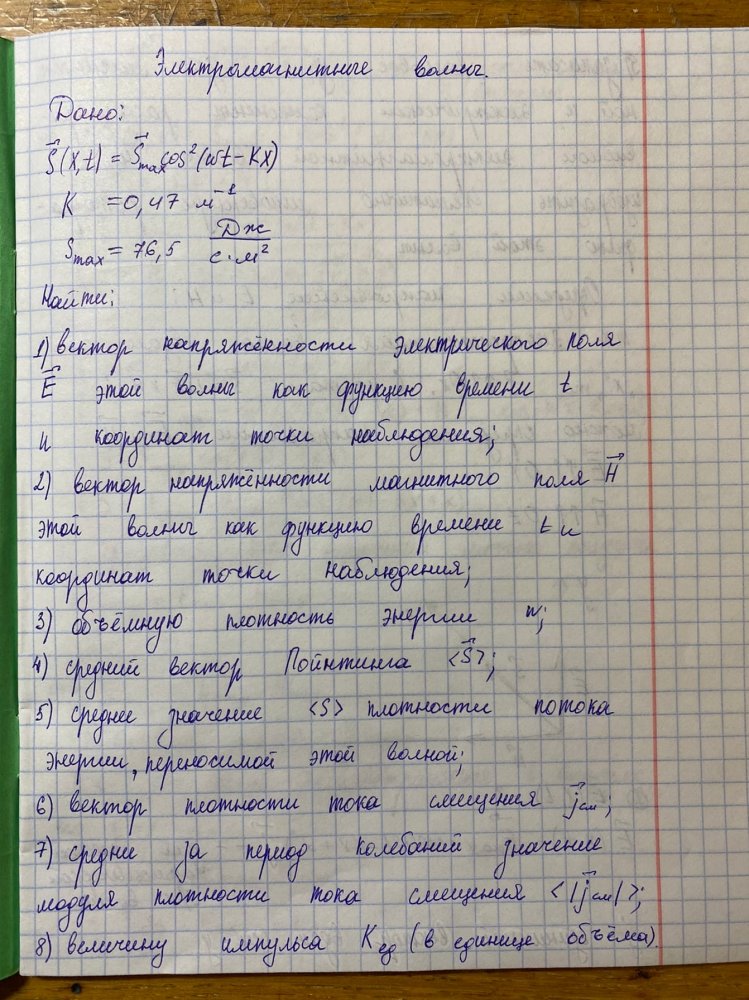 Электромагнитные волны.
Дано:
S⃗(x,t) = S⃗max cos²(ωt − Kx)
K = 0,47 м⁻¹
Smax = 76,5 Дж/с·м²
Найти:
1) вектор напряжённости электрического поля
E⃗ этой волны как функцию времени t
и координат точки наблюдения;
2) вектор напряжённости магнитного поля H⃗
этой волны как функцию времени t и
координат точки наблюдения;
3) объёмную плотность энергии w;
4) средний вектор Пойнтинга <S⃗>;
5) среднее значение <S> плотности потока
энергии, переносимой этой волной;
6) вектор плотности тока смещения j⃗см;
7) среднее за период колебаний значение
модуля плотности тока смещения <|j⃗см|>;
8) величину импульса Kед (в единице объёма).